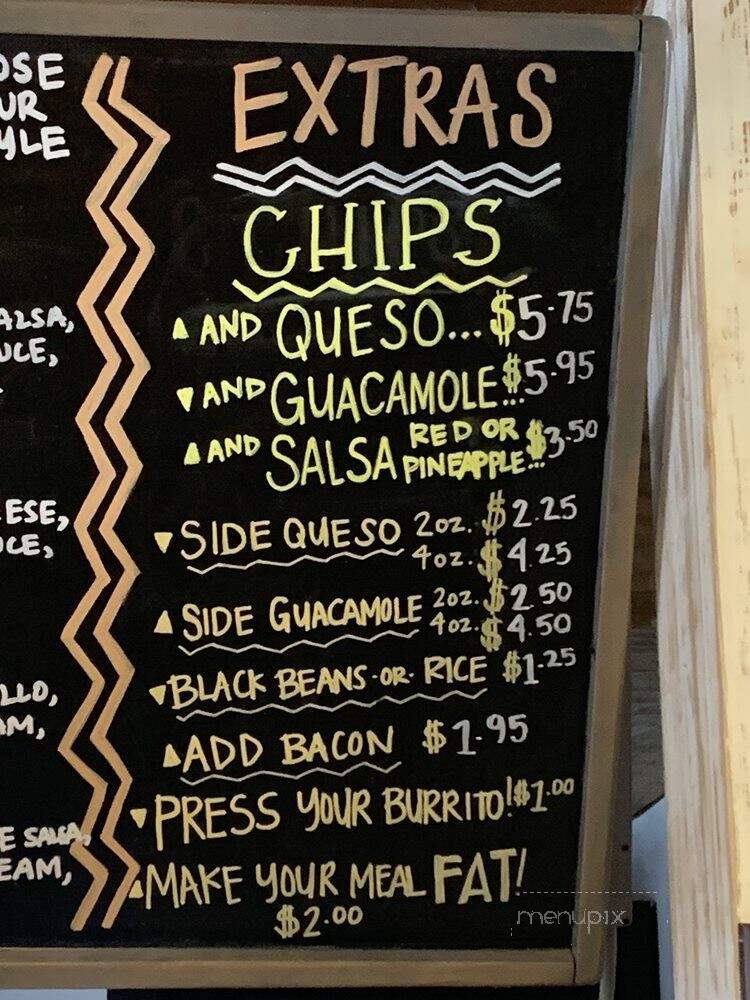 OSE
UR
YLE
ALSA,
UCE,
ESE,
UCE,
LLO,
AM,
E SALSA,
EAM,
EXTRAS
CHIPS
AND QUESO... $5.75
AND GUACAMOLE... $5.95
AND SALSA RED OR PINEAPPLE... $3.50
SIDE QUESO 2oz. $2.25
4oz. $4.25
SIDE GUACAMOLE 2oz. $2.50
4oz. $4.50
BLACK BEANS·OR·RICE $1.25
ADD BACON $1.95
PRESS YOUR BURRITO! $1.00
MAKE YOUR MEAL FAT!
$2.00
menupix